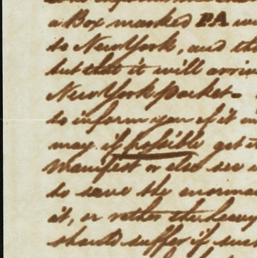 a Box marked PA
to New York, and th
but that it will arriv
New York Packet -
to inform you if it
may if possible get it
Manifest or else
to save the enormo
it, or rather the heavy
should suffer if suc